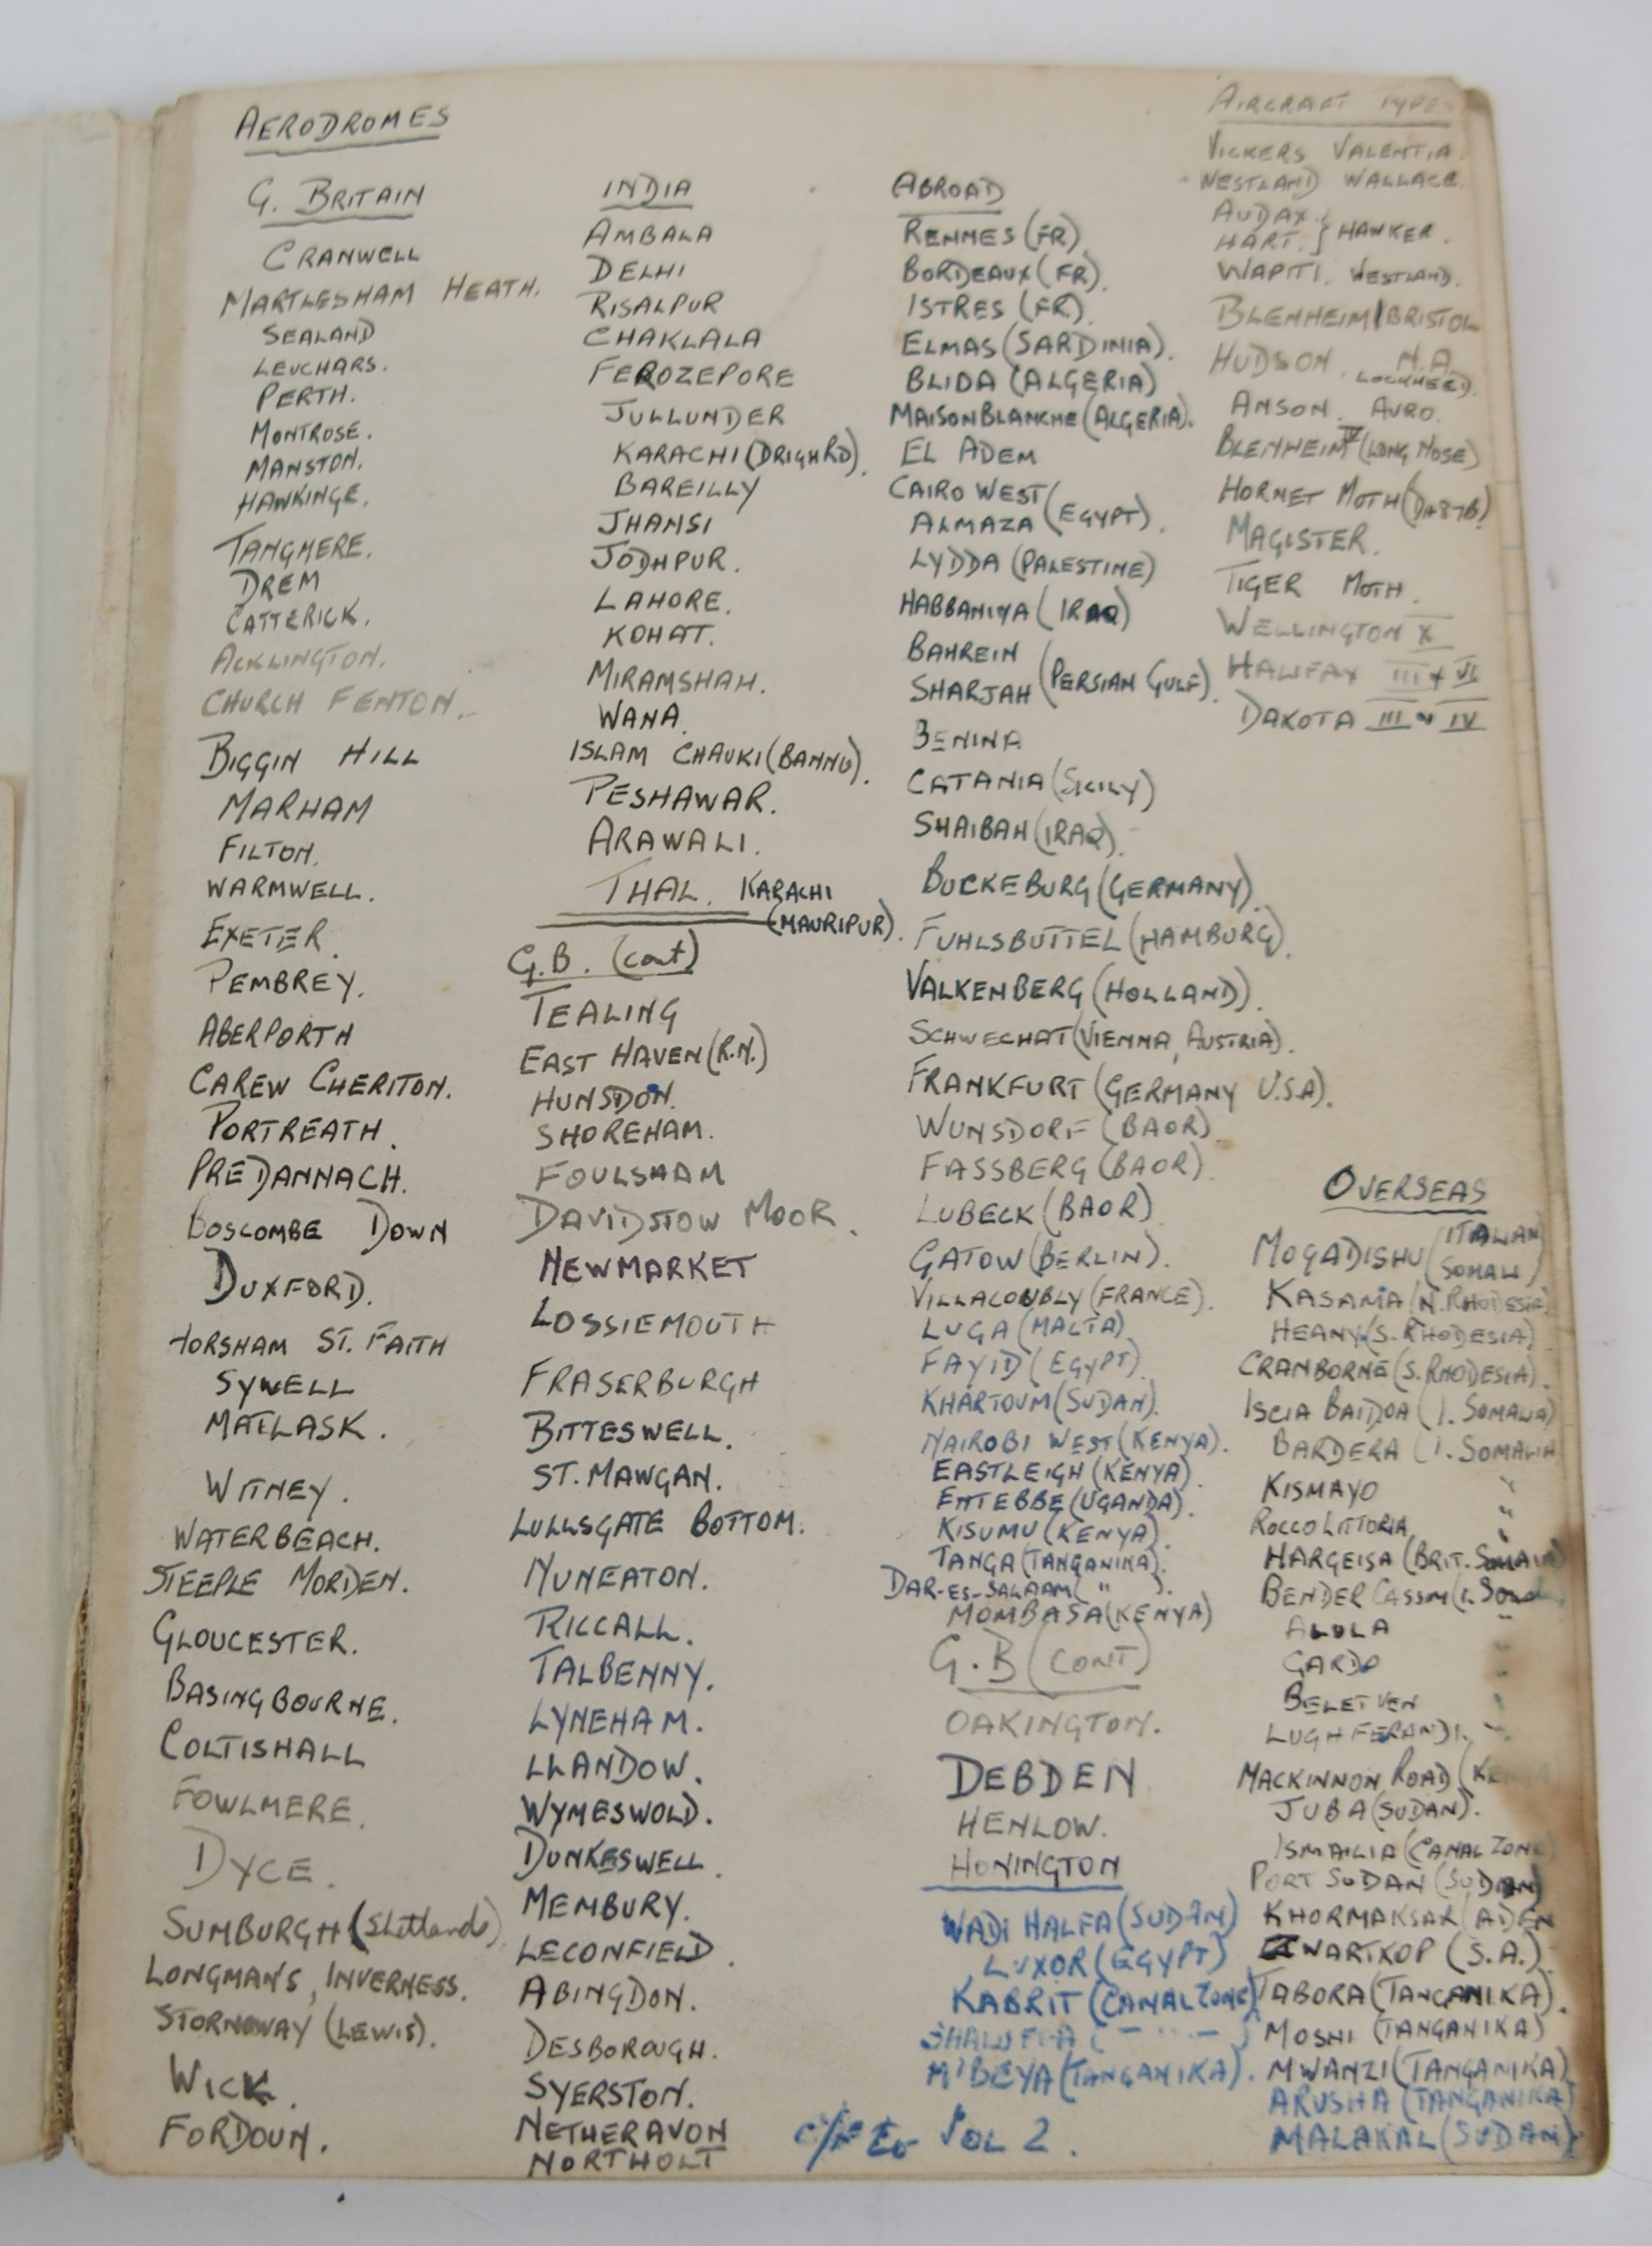 AERODROMES
G. BRITAIN
CRANWELL
MARTLESHAM HEATH.
SEALAND
LEUCHARS.
PERTH.
MONTROSE.
MANSTON.
HAWKINGE.
TANGMERE.
DREM
CATTERICK.
ACKLINGTON.
CHURCH FENTON.
BIGGIN HILL
MARHAM
FILTON.
WARMWELL.
EXETER.
PEMBREY.
ABERPORTH
CAREW CHERITON.
PORTREATH.
PREDANNACH.
BOSCOMBE DOWN
DUXFORD.
HORSHAM ST. FAITH
SYWELL
MATLASK.
WITNEY.
WATERBEACH.
STEEPLE MORDEN.
GLOUCESTER.
BASINGBOURNE.
COLTISHALL
FOWLMERE.
DYCE.
SUMBURGH (Shetlands)
LONGMANS, INVERNESS.
STORNOWAY (LEWIS).
WICK.
FORDOUN.
INDIA
AMBALA
DELHI
RISALPUR
CHAKLALA
FEROZEPORE
JULLUNDER
KARACHI (DRIGH RD).
BAREILLY
JHANSI
JODHPUR.
LAHORE.
KOHAT.
MIRAMSHAH.
WANA.
ISLAM CHAUKI (BANNU).
PESHAWAR.
ARAWALI.
THAL. KARACHI
(MAURIPUR).
G.B. (cont)
TEALING
EAST HAVEN (R.N.)
HUNSDON.
SHOREHAM.
FOULSHAM
DAVIDSTOW MOOR.
NEWMARKET
LOSSIEMOUTH
FRASERBURGH
BITTESWELL.
ST. MAWGAN.
LULLSGATE BOTTOM.
NUNEATON.
RICCALL.
TALBENNY.
LYNEHAM.
LLANDOW.
WYMESWOLD.
DUNKESWELL.
MEMBURY.
LECONFIELD.
ABINGDON.
DESBOROUGH.
SYERSTON.
NETHERAVON
NORTHOLT
ABROAD
RENNES (FR)
BORDEAUX (FR).
ISTRES (FR).
ELMAS (SARDINIA).
BLIDA (ALGERIA)
MAISON BLANCHE (ALGERIA).
EL ADEM
CAIRO WEST
ALMAZA (EGYPT).
LYDDA (PALESTINE)
HABBANIYA (IRAQ)
BAHREIN
SHARJAH (PERSIAN GULF).
BENINA
CATANIA (SICILY)
SHAIBAH (IRAQ).
BUCKEBURG (GERMANY).
FUHLSBUTTEL (HAMBURG).
VALKENBERG (HOLLAND).
SCHWECHAT (VIENNA, AUSTRIA).
FRANKFURT (GERMANY U.S.A).
WUNSDORF (BAOR).
FASSBERG (BAOR).
LUBECK (BAOR)
GATOW (BERLIN).
VILLACOUBLY (FRANCE).
LUGA (MALTA)
FAYID (EGYPT).
KHARTOUM (SUDAN).
NAIROBI WEST (KENYA).
EASTLEIGH (KENYA)
ENTEBBE (UGANDA).
KISUMU (KENYA).
TANGA (TANGANIKA).
DAR-ES-SALAAM ( " ).
MOMBASA (KENYA)
G.B (CONT)
OAKINGTON.
DEBDEN
HENLOW.
HONINGTON
WADI HALFA (SUDAN)
LUXOR (EGYPT)
KABRIT (CANAL ZONE)
SHALUFFA
M'BEYA (TANGANIKA).
VOL 2.
AIRCRAFT TYPES
VICKERS VALENTIA.
WESTLAND WALLACE.
AUDAX.
HART. } HAWKER.
WAPITI. WESTLAND.
BLENHEIM I BRISTOL
HUDSON. N.A.
LOCKHEED.
ANSON. AVRO.
BLENHEIM IV (LONG NOSE)
HORNET MOTH (DH87B)
MAGISTER.
TIGER MOTH.
WELLINGTON X
HALIFAX III & VI
DAKOTA III IV
OVERSEAS
MOGADISHU (ITALIAN
SOMALI)
KASAMA (N. RHODESIA)
HEANY (S. RHODESIA)
CRANBORNE (S. RHODESIA).
ISCIA BAIDOA (I. SOMALIA)
BARDERA (I. SOMALIA
KISMAYO "
ROCCO LITTORIA "
HARGEISA (BRIT. SOMALIA)
BENDER CASSIM (I.
ALULA "
GARDO "
BELETVEN "
LUGH FERANDI. "
MACKINNON ROAD (KENYA
JUBA (SUDAN).
ISMAILIA (CANAL ZONE)
PORT SUDAN (SUDAN)
KHORMAKSAR (ADEN
ZWARTKOP (S.A.).
TABORA (TANGANIKA).
MOSHI (TANGANIKA)
MWANZI (TANGANIKA)
ARUSHA (TANGANIKA)
MALAKAL (SUDAN)